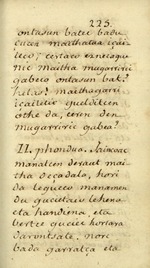 225.
ontasun batec badu
cuas maithatua içai
teco, certaco ennequ
nic maitha mugarriric
gabeco ontasun bat?
helas! maithagarri
içaitetic quelditcen
othe da, ceren den
mugarriric gabea?
II. phondua. Jaincoac
manatcen deraut mai
tha deçadala, hori
da legueco manamen
du guciétaic lehena
eta handiena eta
bertce guciec hortara
darontsate. nor
bada garraitça eta